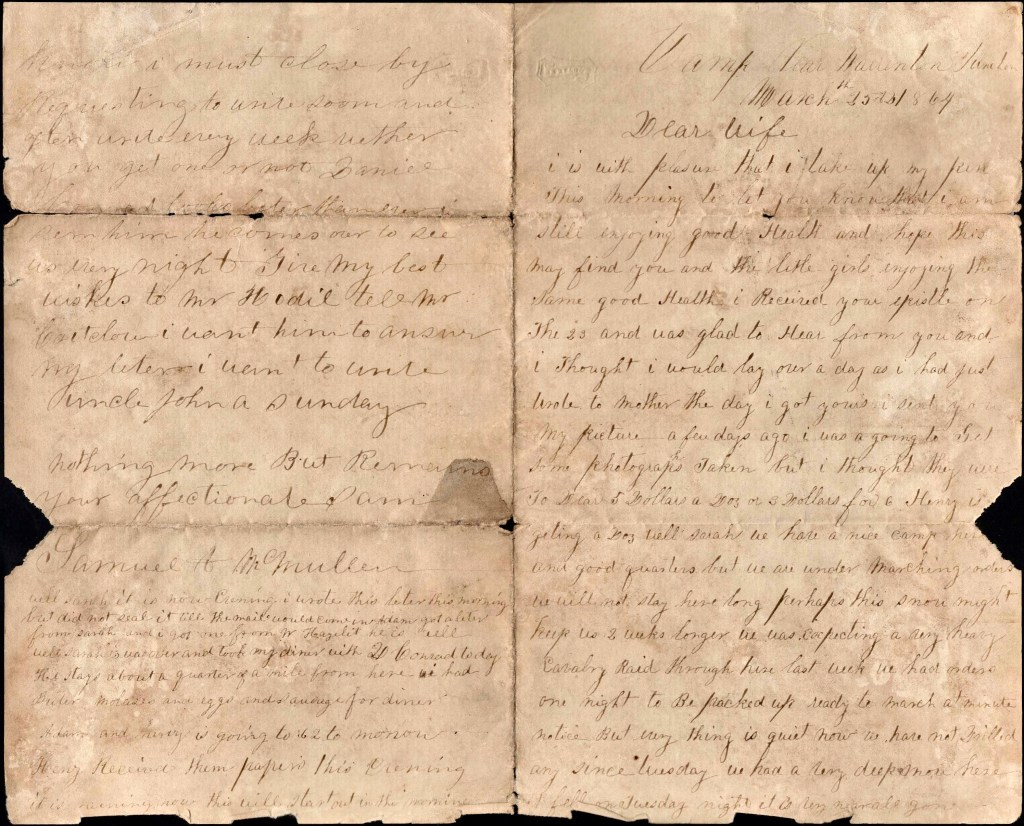 Camp Near Warrenton Junction
March 25th 1864
Dear Wife
i is with pleasure that i take up my pen
This Morning to let you know that i am
still enjoying good Health and hope this
may find you and the little girls enjoying the
same good Health i Received your epistle on
The 23 and was glad to Hear from you and
i Thought i would lay over a day as i had just
wrote to mother the day i got yours i sent you
My picture a few days ago i was a going to Get
some photographs Taken but i thought they were
To Dear 5 Dollars a Doz or 3 Dollars for 6 Henry is
geting a Doz well sarah we have a nice camp here
and good quarters but we are under marching orders
we will not stay here long perhaps this snow might
keep us 2 weeks longer we was expecting a very heavy
Cavalry Raid through here last week we had orders
one night to Be packed up ready to march at a minute
notice But every thing is quiet now we have not drilled
any since tuesday we had a very deep snow here
it fell on Tuesday night it is very nearals gone
i must close by
Requesting to write soon and
often write every week wether
you get one or not Daniel
better than ever i
seen him he comes over to see
us every night Give My best
wishes to Mr Hodil tell Mr
i want him to answer
my leter i went to write
Uncle John a Sunday
nothing more But Remains
your affectionate Sam
Samuel A McMullen
well Sarah it is now Evening i wrote this leter this morning
but did not seal it till the mail would come in adam got a leter
from sarah and i got one from Jr Hazelit he is well
well Sarah i was over and took my diner with D Conrad to day
He stays about a quarter of a mile from here we had
Buter Molases and eggs and sausage for diner
and is going to 62 to morow
Heny Received them papers this Evening
it is raining now this will start out in the morning